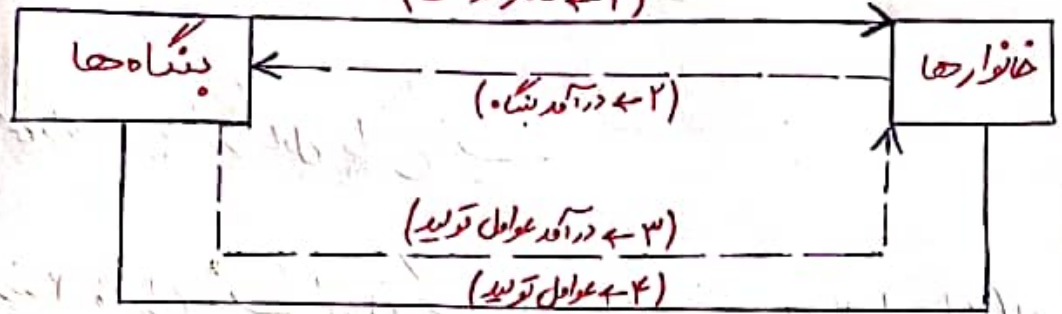 بنگاه‌ها
خانوارها
(۲ ← درآمد بنگاه)
(۳ ← درآمد عوامل تولید)
(۴ ← عوامل تولید)